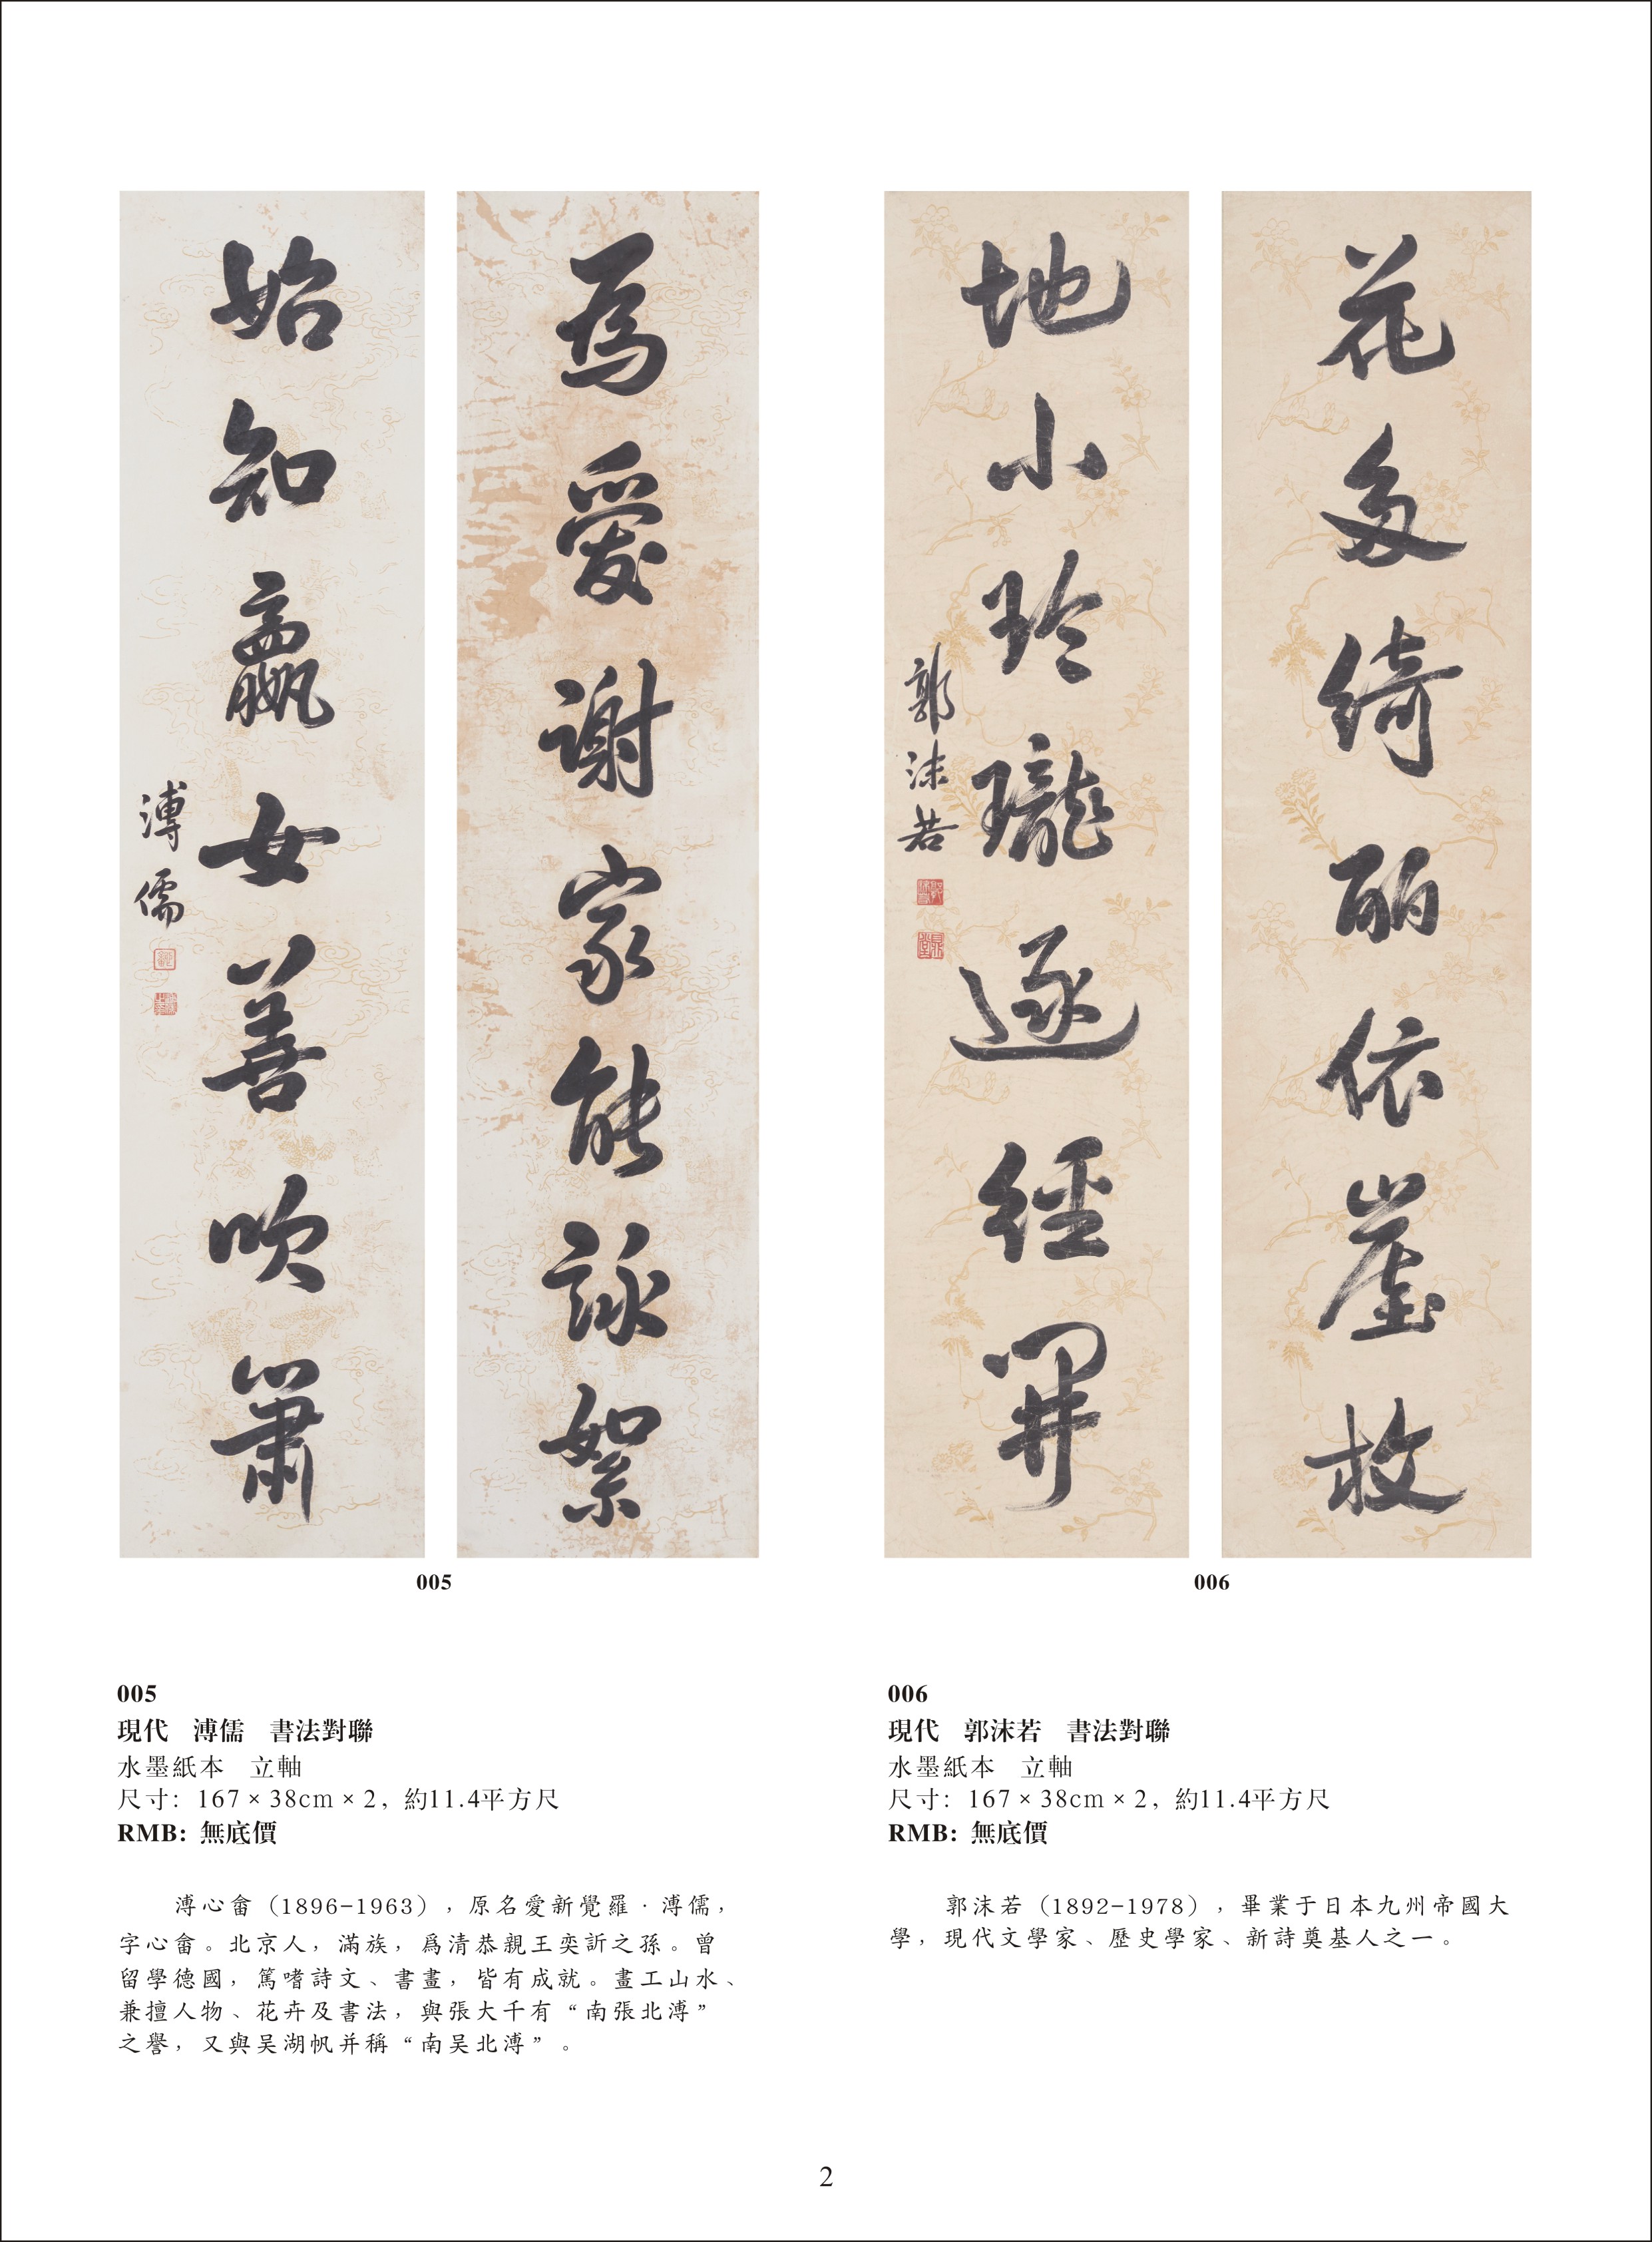 為愛謝家能詠絮
始知嬴女善吹簫
溥儒
005
花多綺麗依崖放
地小玲瓏逐徑開
郭沫若
006
005
現代 溥儒 書法對聯
水墨紙本 立軸
尺寸: 167×38cm×2, 約11.4平方尺
RMB: 無底價
溥心畬（1896-1963）, 原名愛新覺羅·溥儒,
字心畬。北京人, 滿族, 爲清恭親王奕訢之孫。曾
留學德國, 篤嗜詩文、書畫, 皆有成就。畫工山水、
兼擅人物、花卉及書法, 與張大千有“南張北溥”
之譽, 又與吴湖帆并稱“南吴北溥”。
006
現代 郭沫若 書法對聯
水墨紙本 立軸
尺寸: 167×38cm×2, 約11.4平方尺
RMB: 無底價
郭沫若（1892-1978）, 畢業于日本九州帝國大
學, 現代文學家、歷史學家、新詩奠基人之一。
2